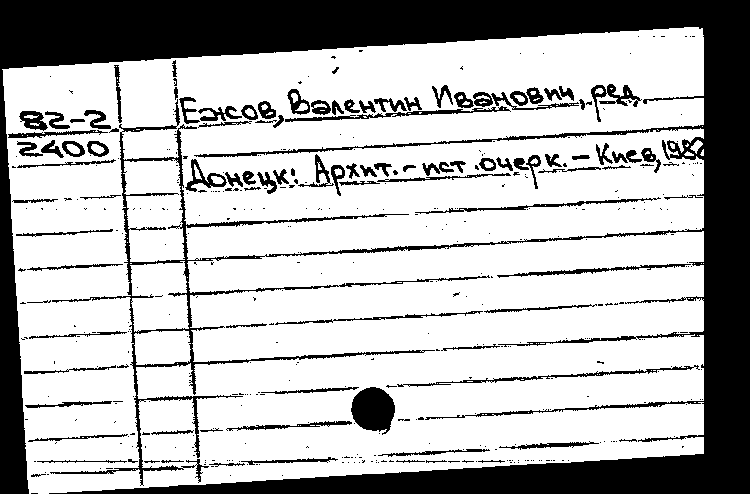 82-2
2400
Ежов, Валентин Иванович, ред.
Донецк: Архит.-ист. очерк. — Киев, 1982